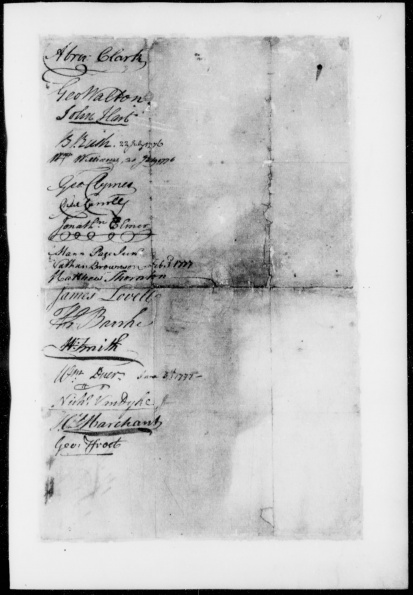 Abra Clark
Geo Walton
John Hart
B Rush 22 July 1776
Wm Williams, 28 July 1776
Geo Clymer
Cha Carroll
Jonathn Elmer
Mann Page Junr
Nathan Brownson 1777
Matthew Thornton
James Lovell
Banks
Smith
Wm Duer 1777
Nichs VanDyke
Hy Marchant
Geo: Frost